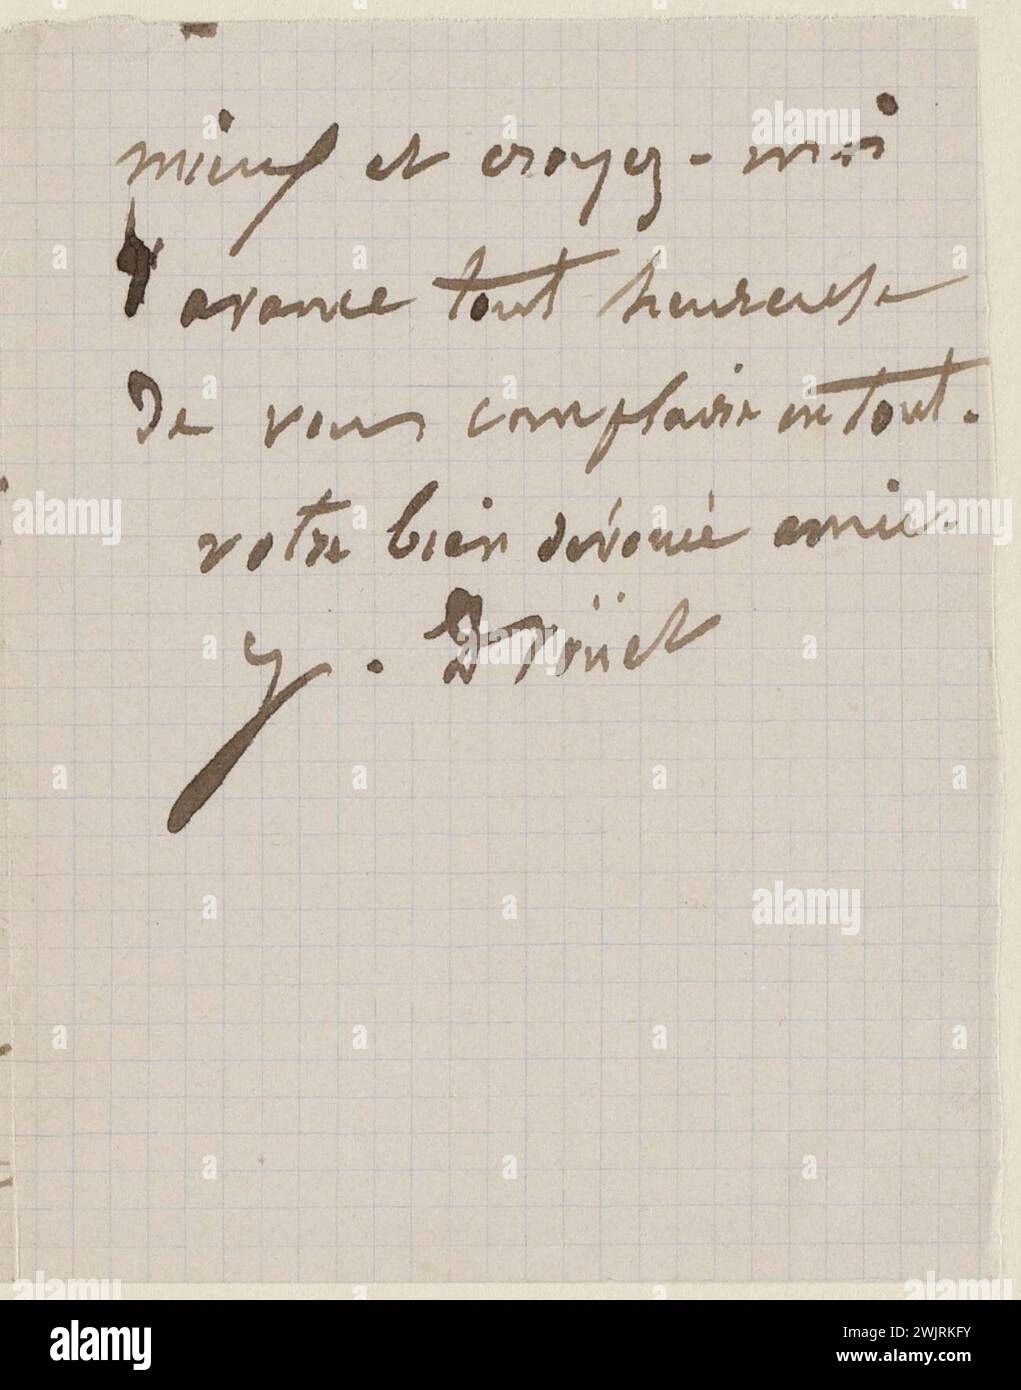 mieux et croyez-moi
d'avance tout heureuse
de vous complaire en tout.
votre bien dévouée amie.
J. Droüet
alamy
Image ID: 2WJRKFY
www.alamy.com